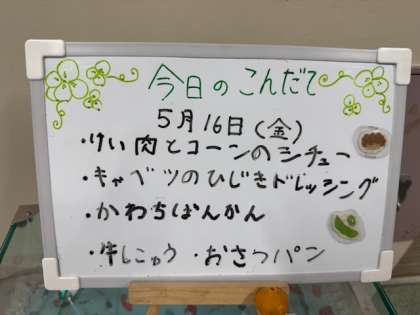 今日のこんだて
5月16日(金)
・けい肉とコーンのシチュー
・キャベツのひじきドレッシング
・かわちばんかん
・牛にゅう ・おさつパン